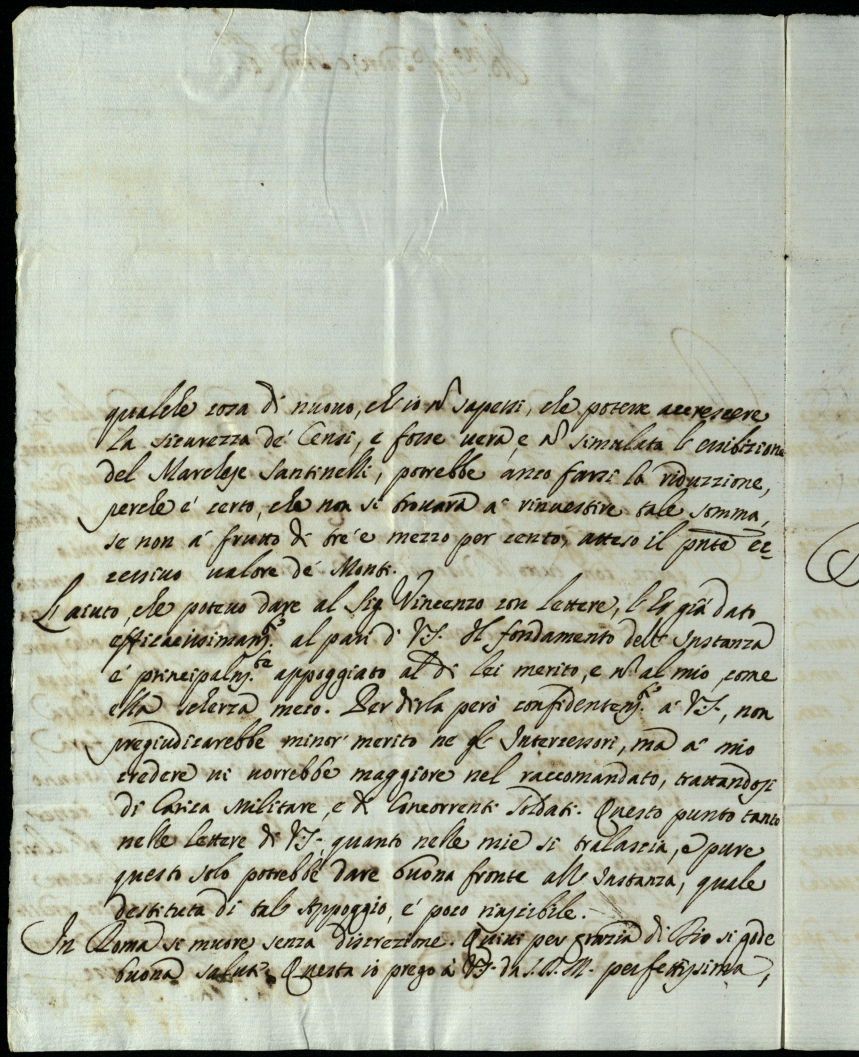 qualche cosa di nuouo, ch'io nõ sapessi, che potesse accrescere
la sicurezza de' Censi, e fosse uera, e nõ simulata l'esibizione
del Marchese Santinelli, potrebbe anco farsi la riduzzione,
perche e' certo, che non si trouarà à rinuestire tale somma,
se non à frutto di tre' e mezzo per cento, atteso il pñte ec=
cessiuo ualore de' Monti.
L'aiuto, che poteuo dare al Sig. Vincenzo con lettere, l'hò già dato
efficacissimam.te al pari di VS. Il fondamento dell'Instanza
e' principalm.te appoggiato al di lei merito, e nõ al mio, come
ella scherza meco. Per dirla però confidentem.te à VS, non
pregiudicarebbe minor' merito ne gl'Intercessori, mà à mio
credere ui uorrebbe maggiore nel raccomandato, trattandosi
di Carica Militare, e di Concorrenti Soldati. Questo punto tanto
nelle lettere di VS, quanto nelle mie si tralascia, e pure
questo solo potrebbe dare buona fronte all'Instanza, quale
destituta di tale Appoggio, e' poco riuscibile.
In Roma si muore senza discrezione. Quiui per grazia di Dio si gode
buona salute. Questa io prego à VS. da S.D.M. perfettissima,